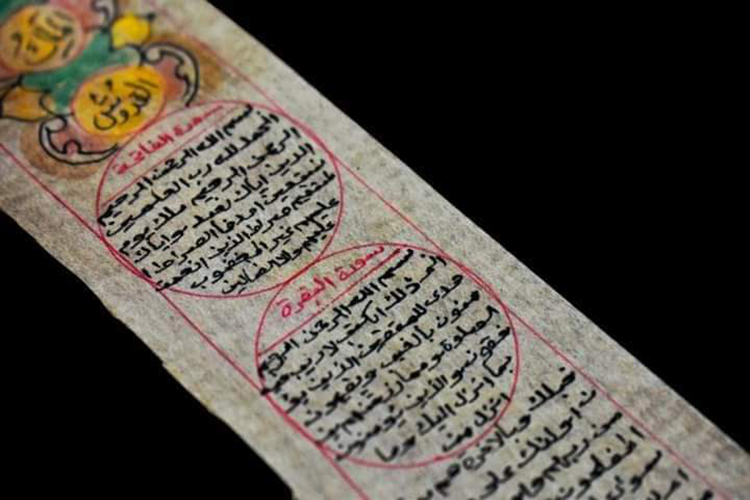 الملك
القدوس
سورة الفاتحة
بسم الله الرحمن الرحيم
الحمد لله رب العلمين
الرحمن الرحيم ملك يوم
الذين اياك نعبد واياك
نستعين اهدنا الصراط ا
لمستقيم صراط الذين انعمت
عليهم غير المغضوب
عليهم ولا الضالين
سورة البقرة
بسم الله الرحمن الرحيم
الم ذلك الكتب لاريب فيه
هدى للمتقين الذين يؤ
منون بالغيب ويقيمون
الصلوة ومما رزقنهم ين
فقون والذين يؤمنون
بما انزل اليك وما
انزل من
قبلك وبالاخرة هم يو
ن اولئك على
من ربهم وا
المفلحون